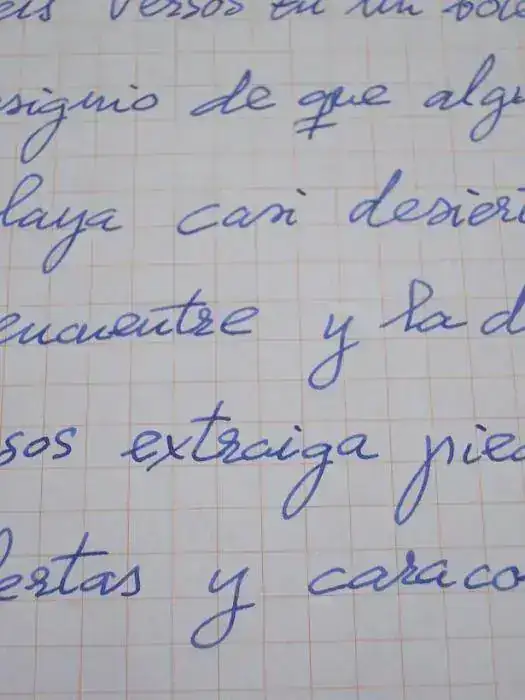 eis versos en un bote
signio de que algu
laya casi desiert
encuentre y la d
sos extraiga pied
ertas y caraco